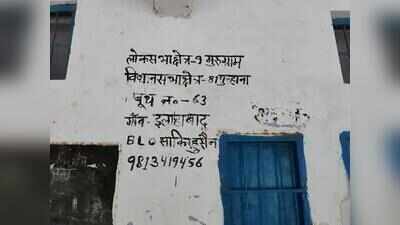 लोकसभाक्षेत्र-9 गुरुग्राम
विधानसभाक्षेत्र-81 पुन्हाना
बूथ न०-63
गाँव-इलाहाबाद
BLO साकिरहुसैन
9813419456